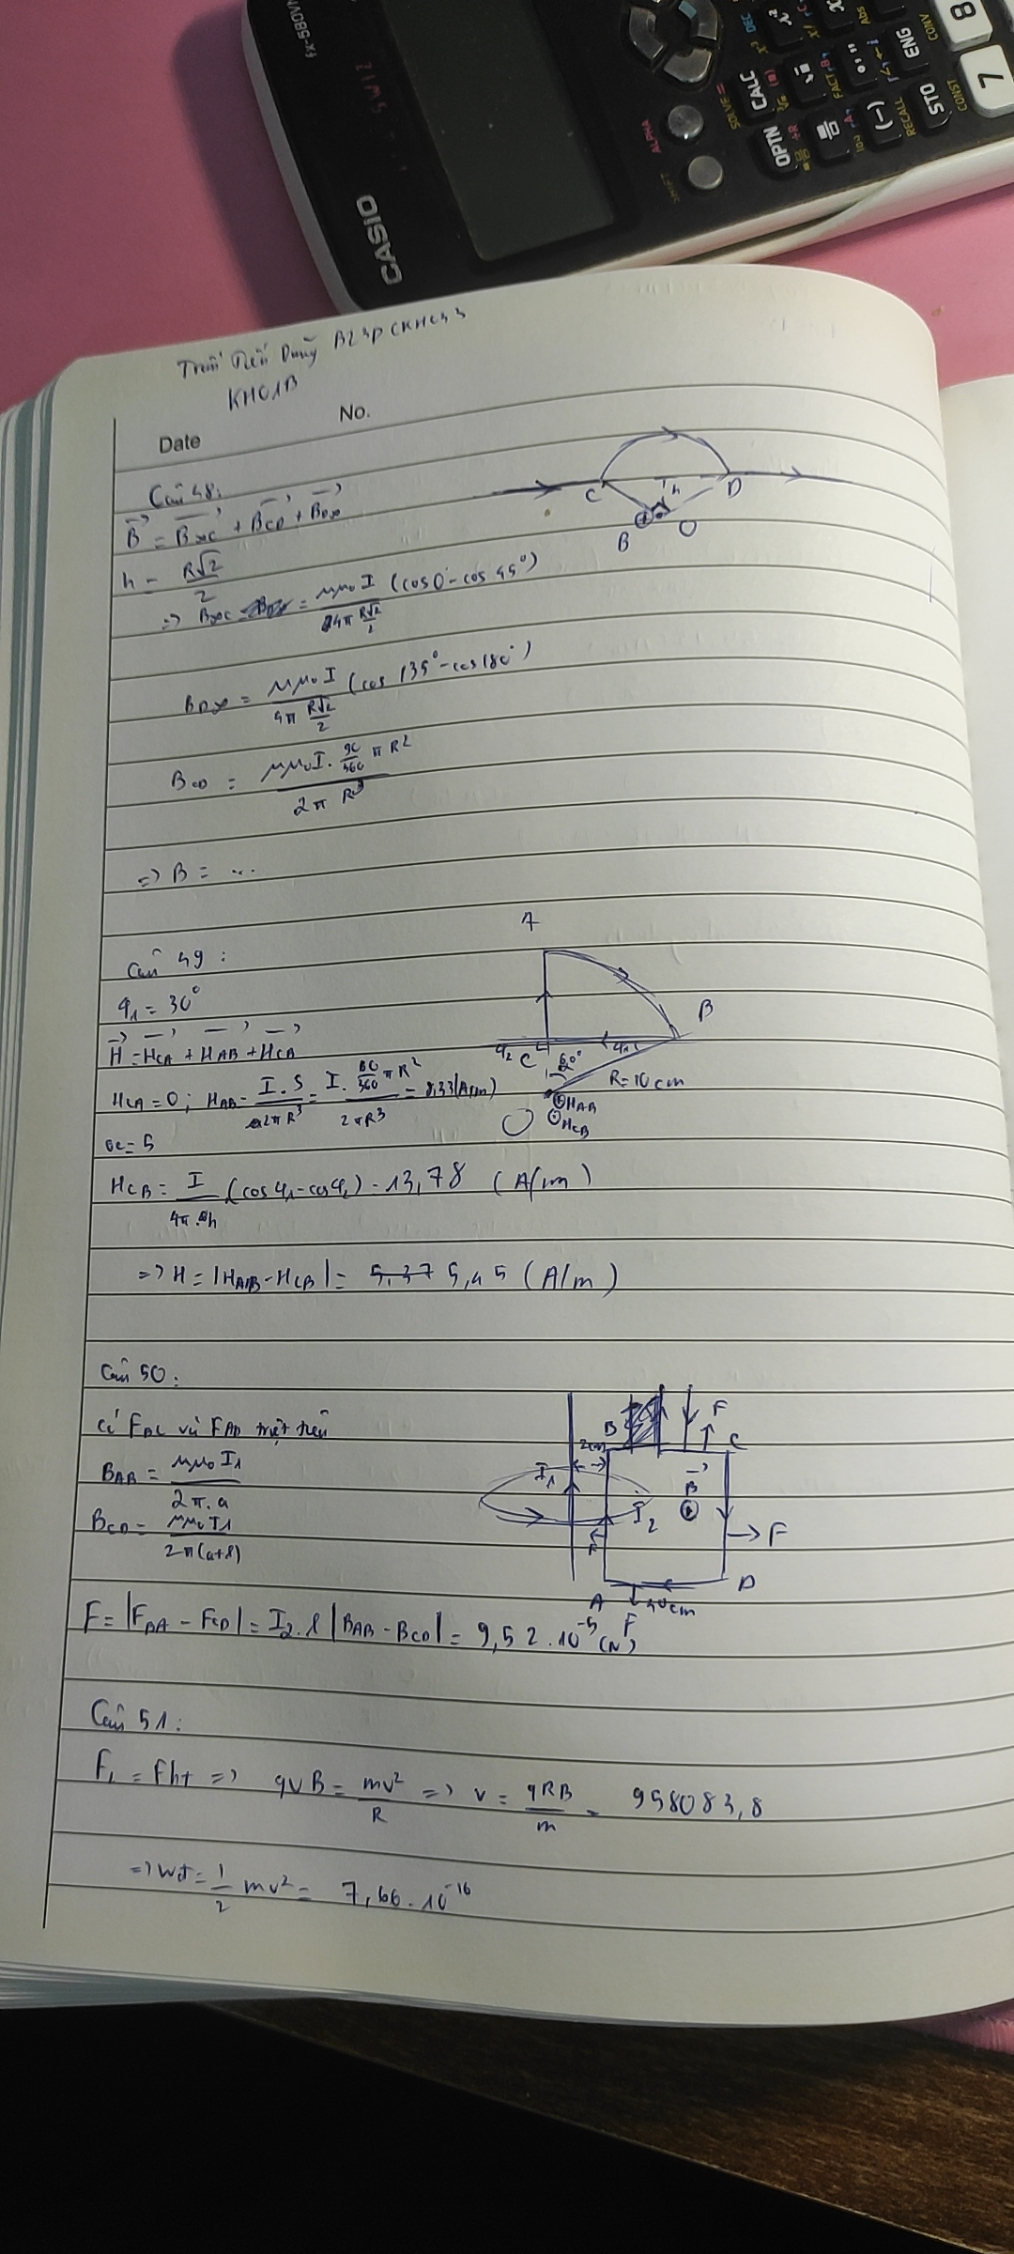 CASIO
fx-580VN
SHIFT
ALPHA
OPTN CALC
SOLVE =
STO ENG
(-)
RECALL
CONST
CONV
7
8
B23DCKH033
KH01B
Date No.
Câu 48:
B = B∞C + BCD + BD∞
h = R√2/2
=> B∞C = μμ₀I/(4π R√2/2) (cos0° - cos45°)
BD∞ = μμ₀I/(4π R√2/2) (cos 135° - cos180°)
BCD = μμ₀I . 90/360 πR²/(2πR³)
=> B = ...
C D h B O
Câu 49:
φ₁ = 30°
H = HCA + HAB + HCB
HCA = 0 ; HAB = I.S/(2πR³) = I. 60/360 πR²/(2πR³) = 8,33 (A/m)
OC = 5
HCB = I/(4π.h) (cosφ₁ - cosφ₂) = 13,78 (A/m)
=> H = |HAB - HCB| = 5,45 (A/m)
A B C φ₂ φ₁ 60° R = 10cm HAB HCB O
Câu 50:
Có FBC và FAD triệt tiêu
BAB = μμ₀I₁/(2π.a)
BCD = μμ₀I1/(2π(a+l))
F = |FBA - FCD| = I₂.l |BAB - BCD| = 9,52.10⁻⁵ (N)
B C F 2cm I₁ I₂ B F F A D 10cm F
Câu 51:
F₁ = Fht => qvB = mv²/R => v = qRB/m = 958083,8
=> Wđ = 1/2 mv² = 7,66.10⁻¹⁶